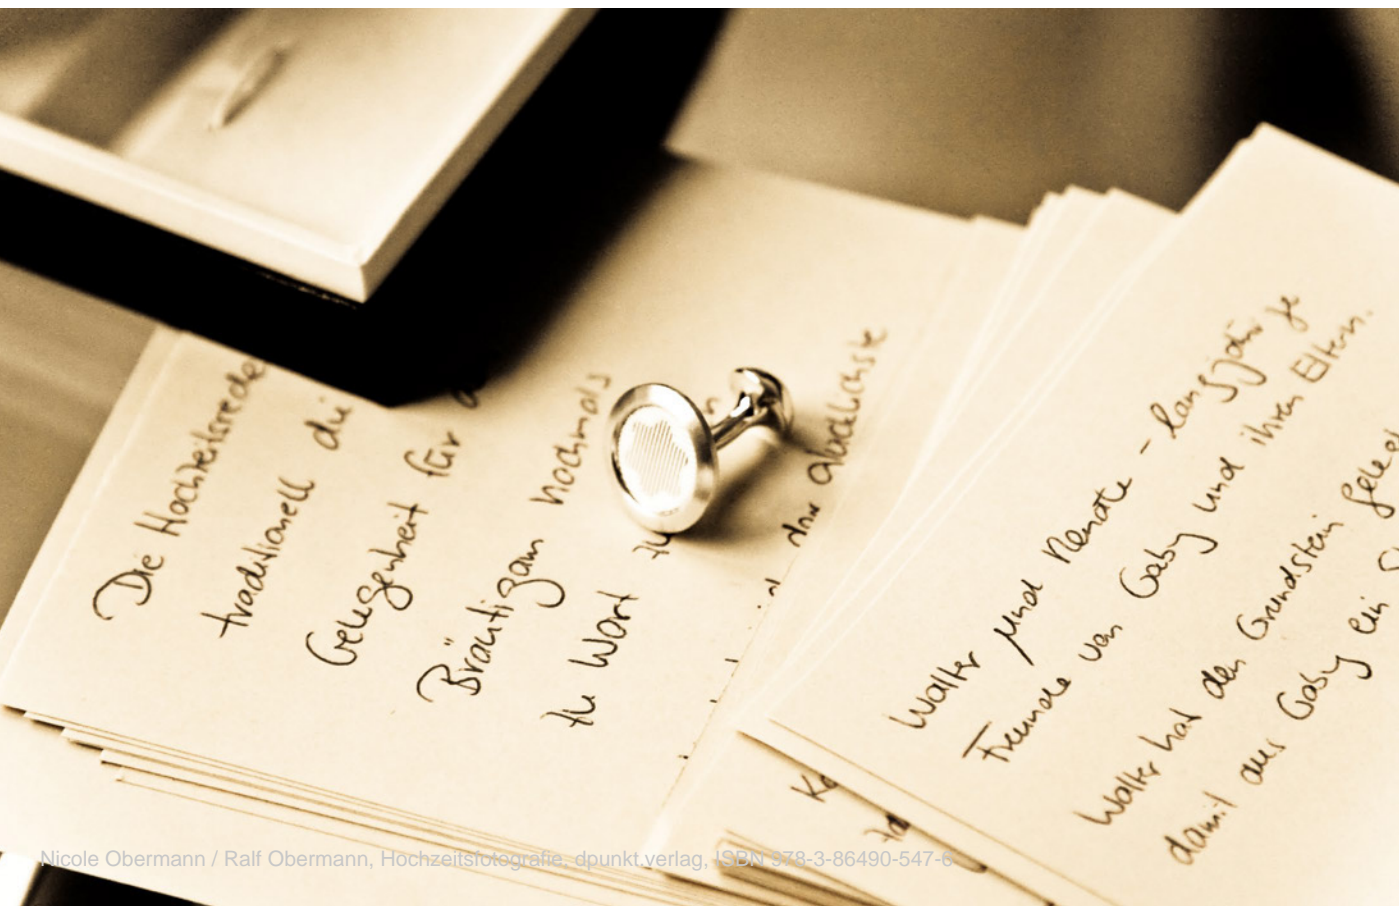 Die Hochzeitsrede
traditionell die
Gelegenheit für
Bräutigam nochmals
zu Wort zu
der glücklichste
Walter und Renate - langjährige
Freunde von Gaby und ihren Eltern.
Walter hat den Grundstein gelegt
damit aus Gaby ein
Nicole Obermann / Ralf Obermann, Hochzeitsfotografie, dpunkt.verlag, ISBN 978-3-86490-547-6